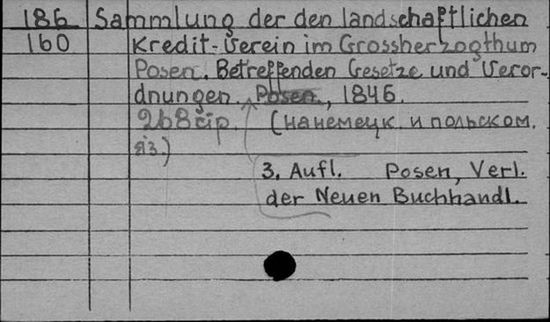 186 Sammlung der den landschaftlichen
160 Kredit-Verein im Grossherzogthum
Posen. Betreffenden Gesetze und Veror-
dnungen. Posen, 1846.
268 стр. (на немецк. и польском.
яз.)
3. Aufl. Posen, Verl.
der Neuen Buchhandl.